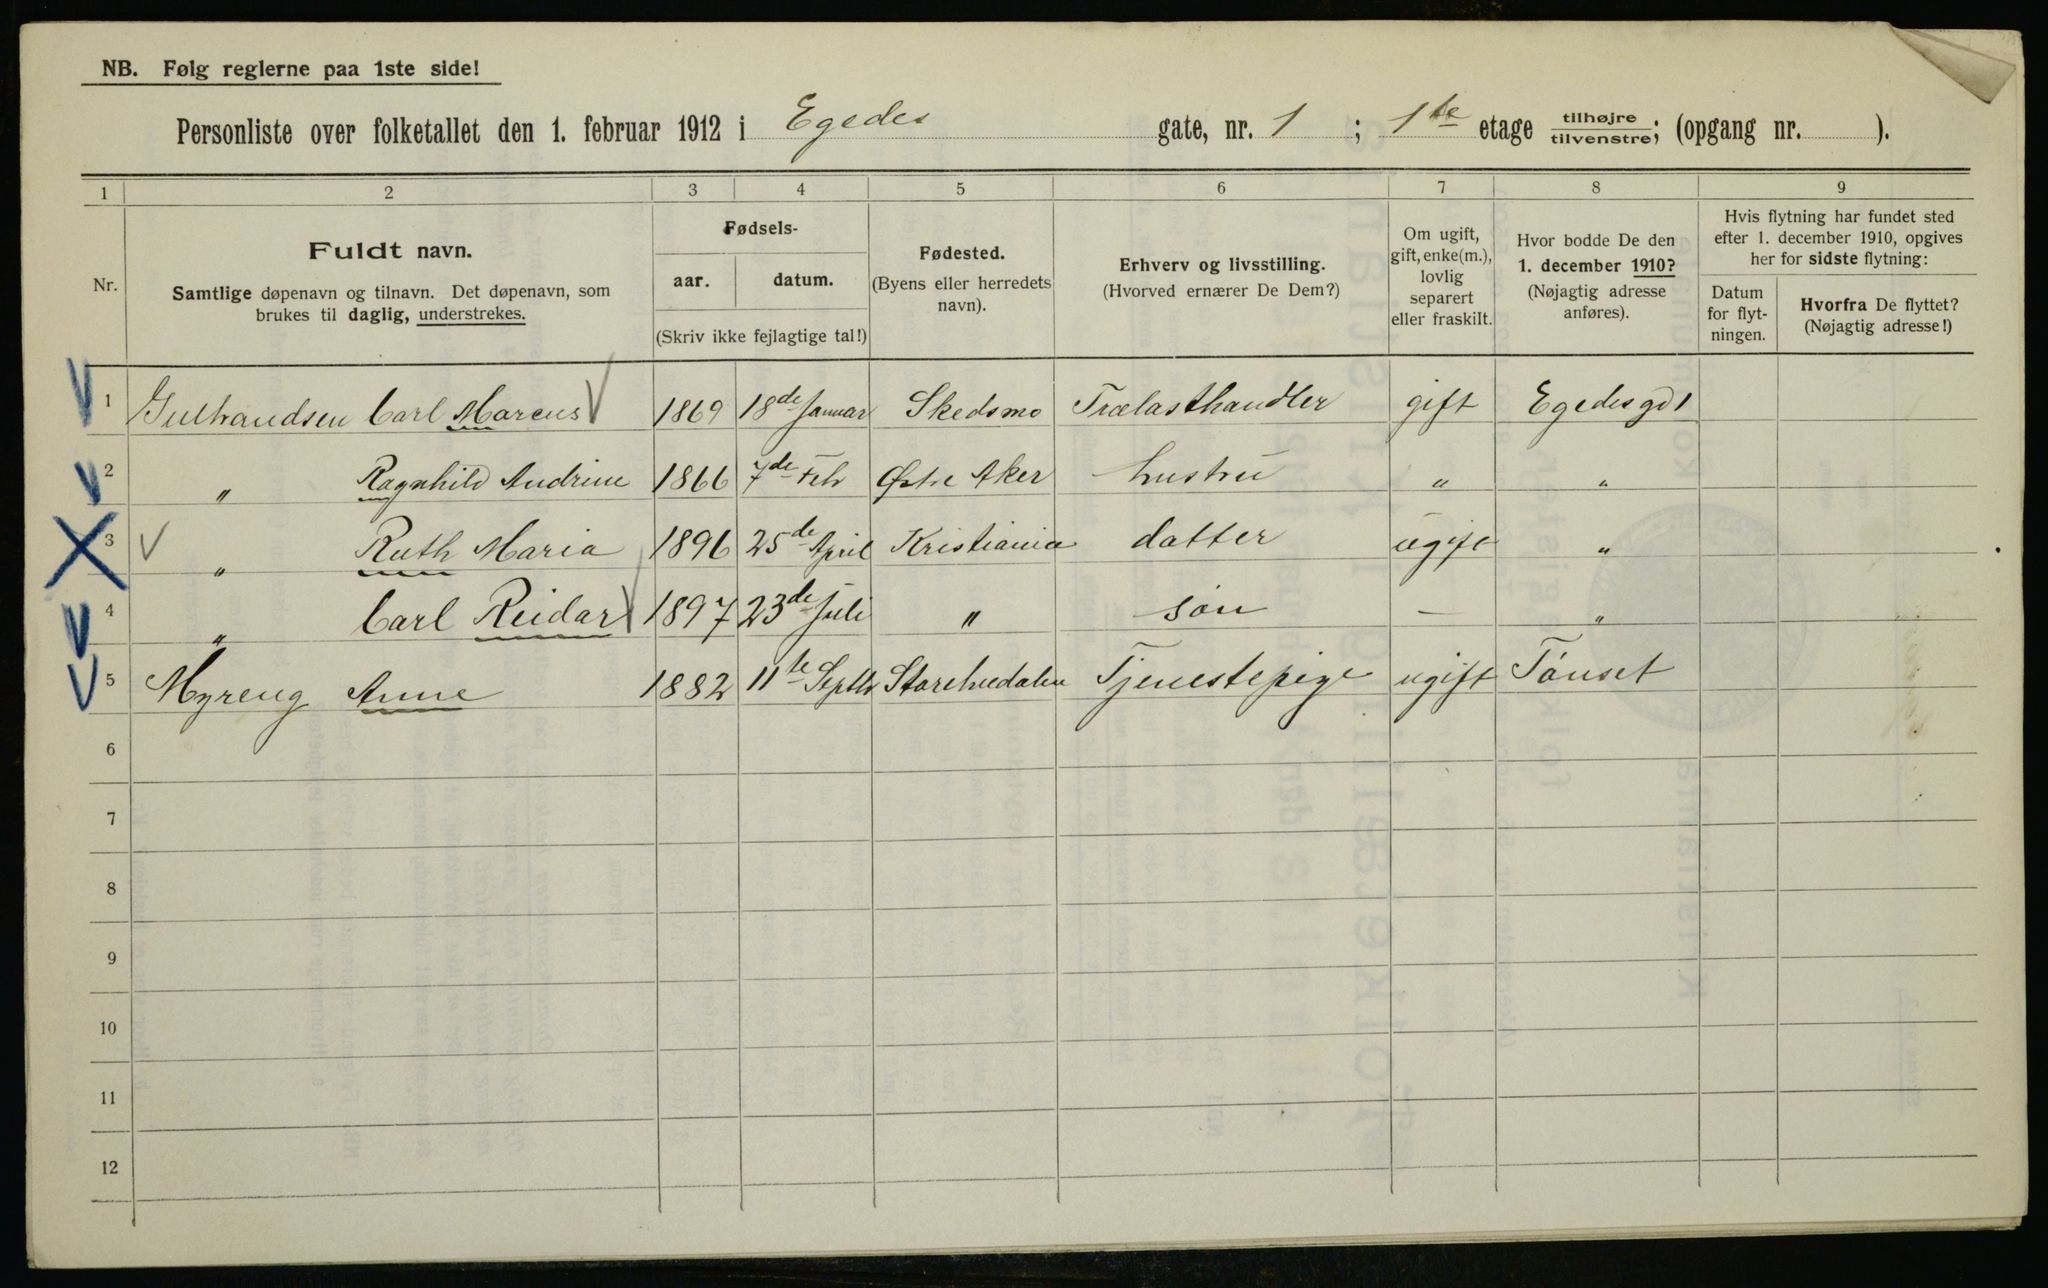 NB. Følg reglerne paa 1ste side!
Personliste over folketallet den 1. februar 1912 i Egedes gate, nr. 1 ; 1ste etage tilhøjre/tilvenstre; (opgang nr. ).
1 2 3 4 5 6 7 8 9
Nr.
Fuldt navn.
Samtlige døpenavn og tilnavn. Det døpenavn, som
brukes til daglig, understrekes.
Fødsels-
aar. datum.
(Skriv ikke fejlagtige tal!)
Fødested.
(Byens eller herredets
navn).
Erhverv og livsstilling.
(Hvorved ernærer De Dem?)
Om ugift,
gift, enke(m.),
lovlig
separert
eller fraskilt.
Hvor bodde De den
1. december 1910?
(Nøjagtig adresse
anføres).
Hvis flytning har fundet sted
efter 1. december 1910, opgives
her for sidste flytning:
Datum
for flyt-
ningen.
Hvorfra De flyttet?
(Nøjagtig adresse!)
1 Gulbrandsen Carl Marcus 1869 18de Januar Skedsmo Trælasthandler gift Egedesgd 1
2 " Ragnhild Andrine 1866 7de Feb Østre Aker hustru " "
3 " Ruth Maria 1896 25de April Kristiania datter ugift "
4 " Carl Reidar 1897 23de Juli " søn — "
5 Myreng Anne 1882 11te Septbr Tjenestepige ugift Tønset
6
7
8
9
10
11
12